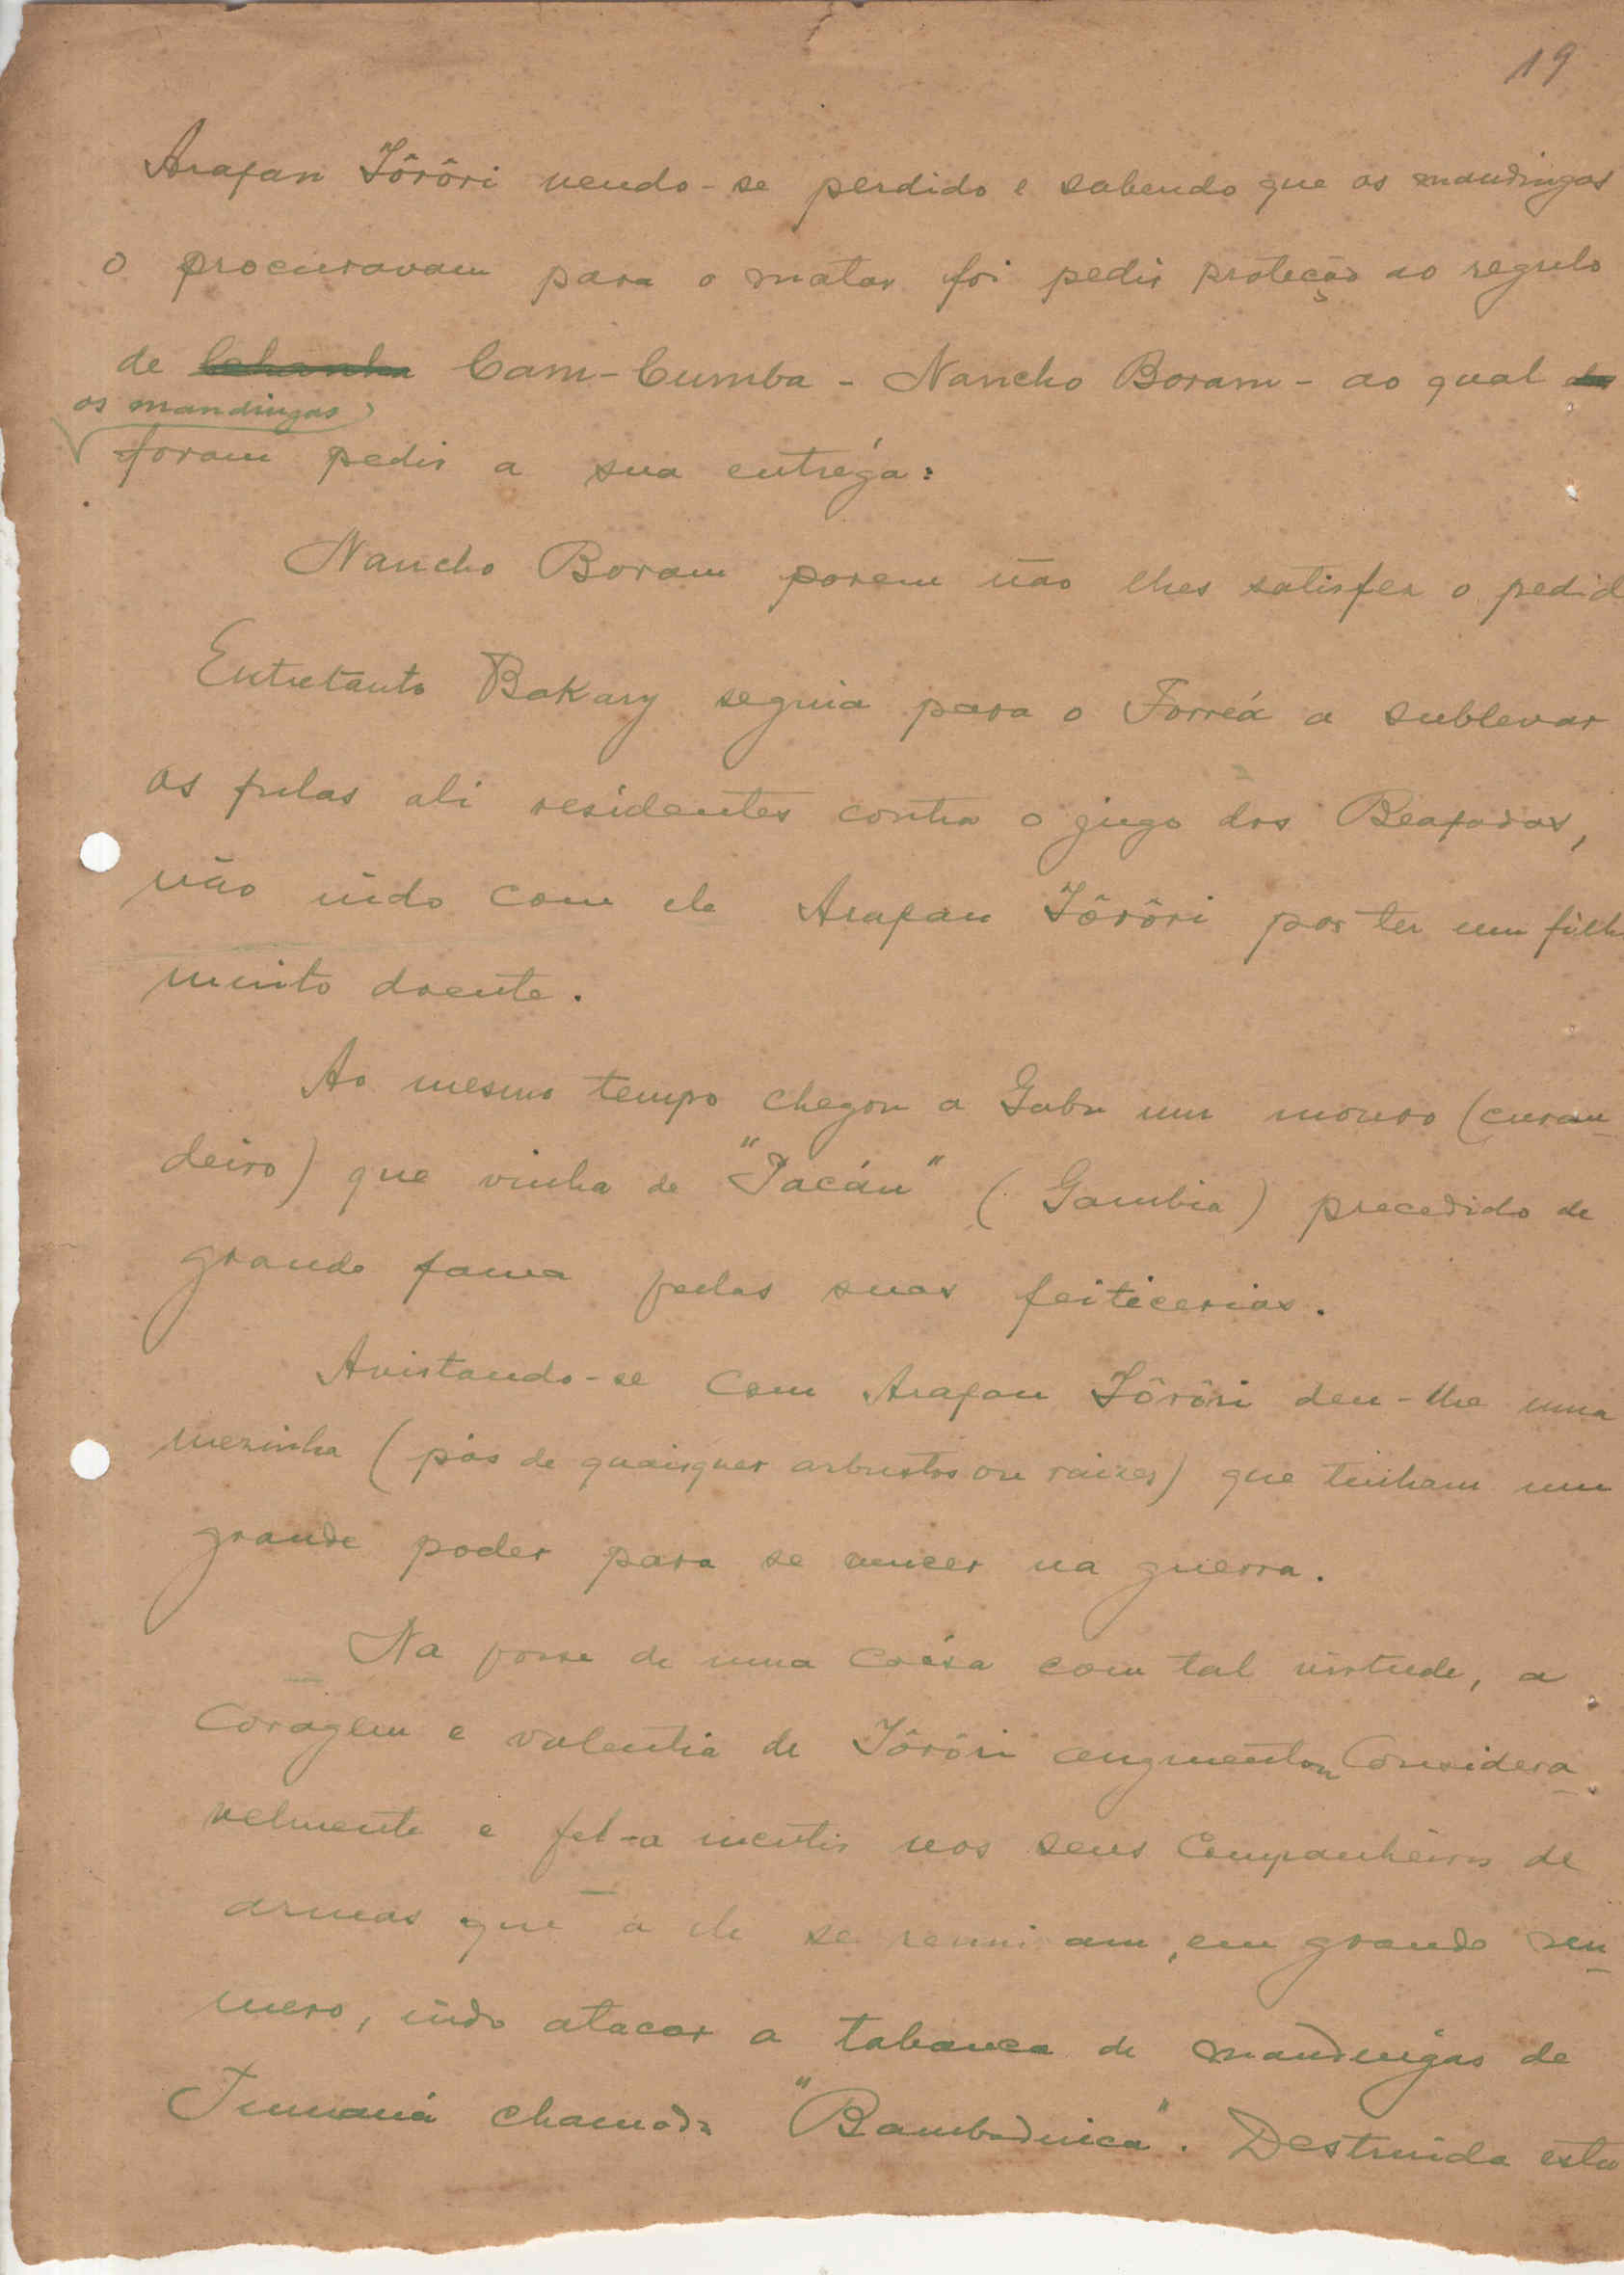 19
Arafan Iôrôri vendo-se perdido e sabendo que os mandingas
o procuravam para o matar foi pedir proteção ao regulo
de Cam-Cumba - Nancho Boram - ao qual
os mandingas
foram pedir a sua entréga:
Nancho Boram porem não lhes satisfez o pedid
Entretanto Bakary seguia para o Forreá a sublevar
os fulas ali residentes contra o jugo dos Beafadas,
não indo com ele Arafan Iôrôri por ter um filh
muito doente.
Ao mesmo tempo chegou a Gabu um mouro (curan-
deiro) que vinha de "Jacán" (Gambia) precedido de
grande fama pelas suas feiticerias.
Avistando-se com Arafan Iôrôri deu-lhe uma
mezinha (pós de quaisquer arbustos ou raizes) que tinham um
grande poder para se vencer na guerra.
Na posse de uma coisa com tal virtude, a
coragem e valentia de Iôrôri augmentou considera-
velmente e fel-a incutir nos seus companheiros de
armas que a ele se reuniam, em grande nu-
mero, indo atacar a tabanca de mandingas de
chamada "Bambadinca". Destruida esta